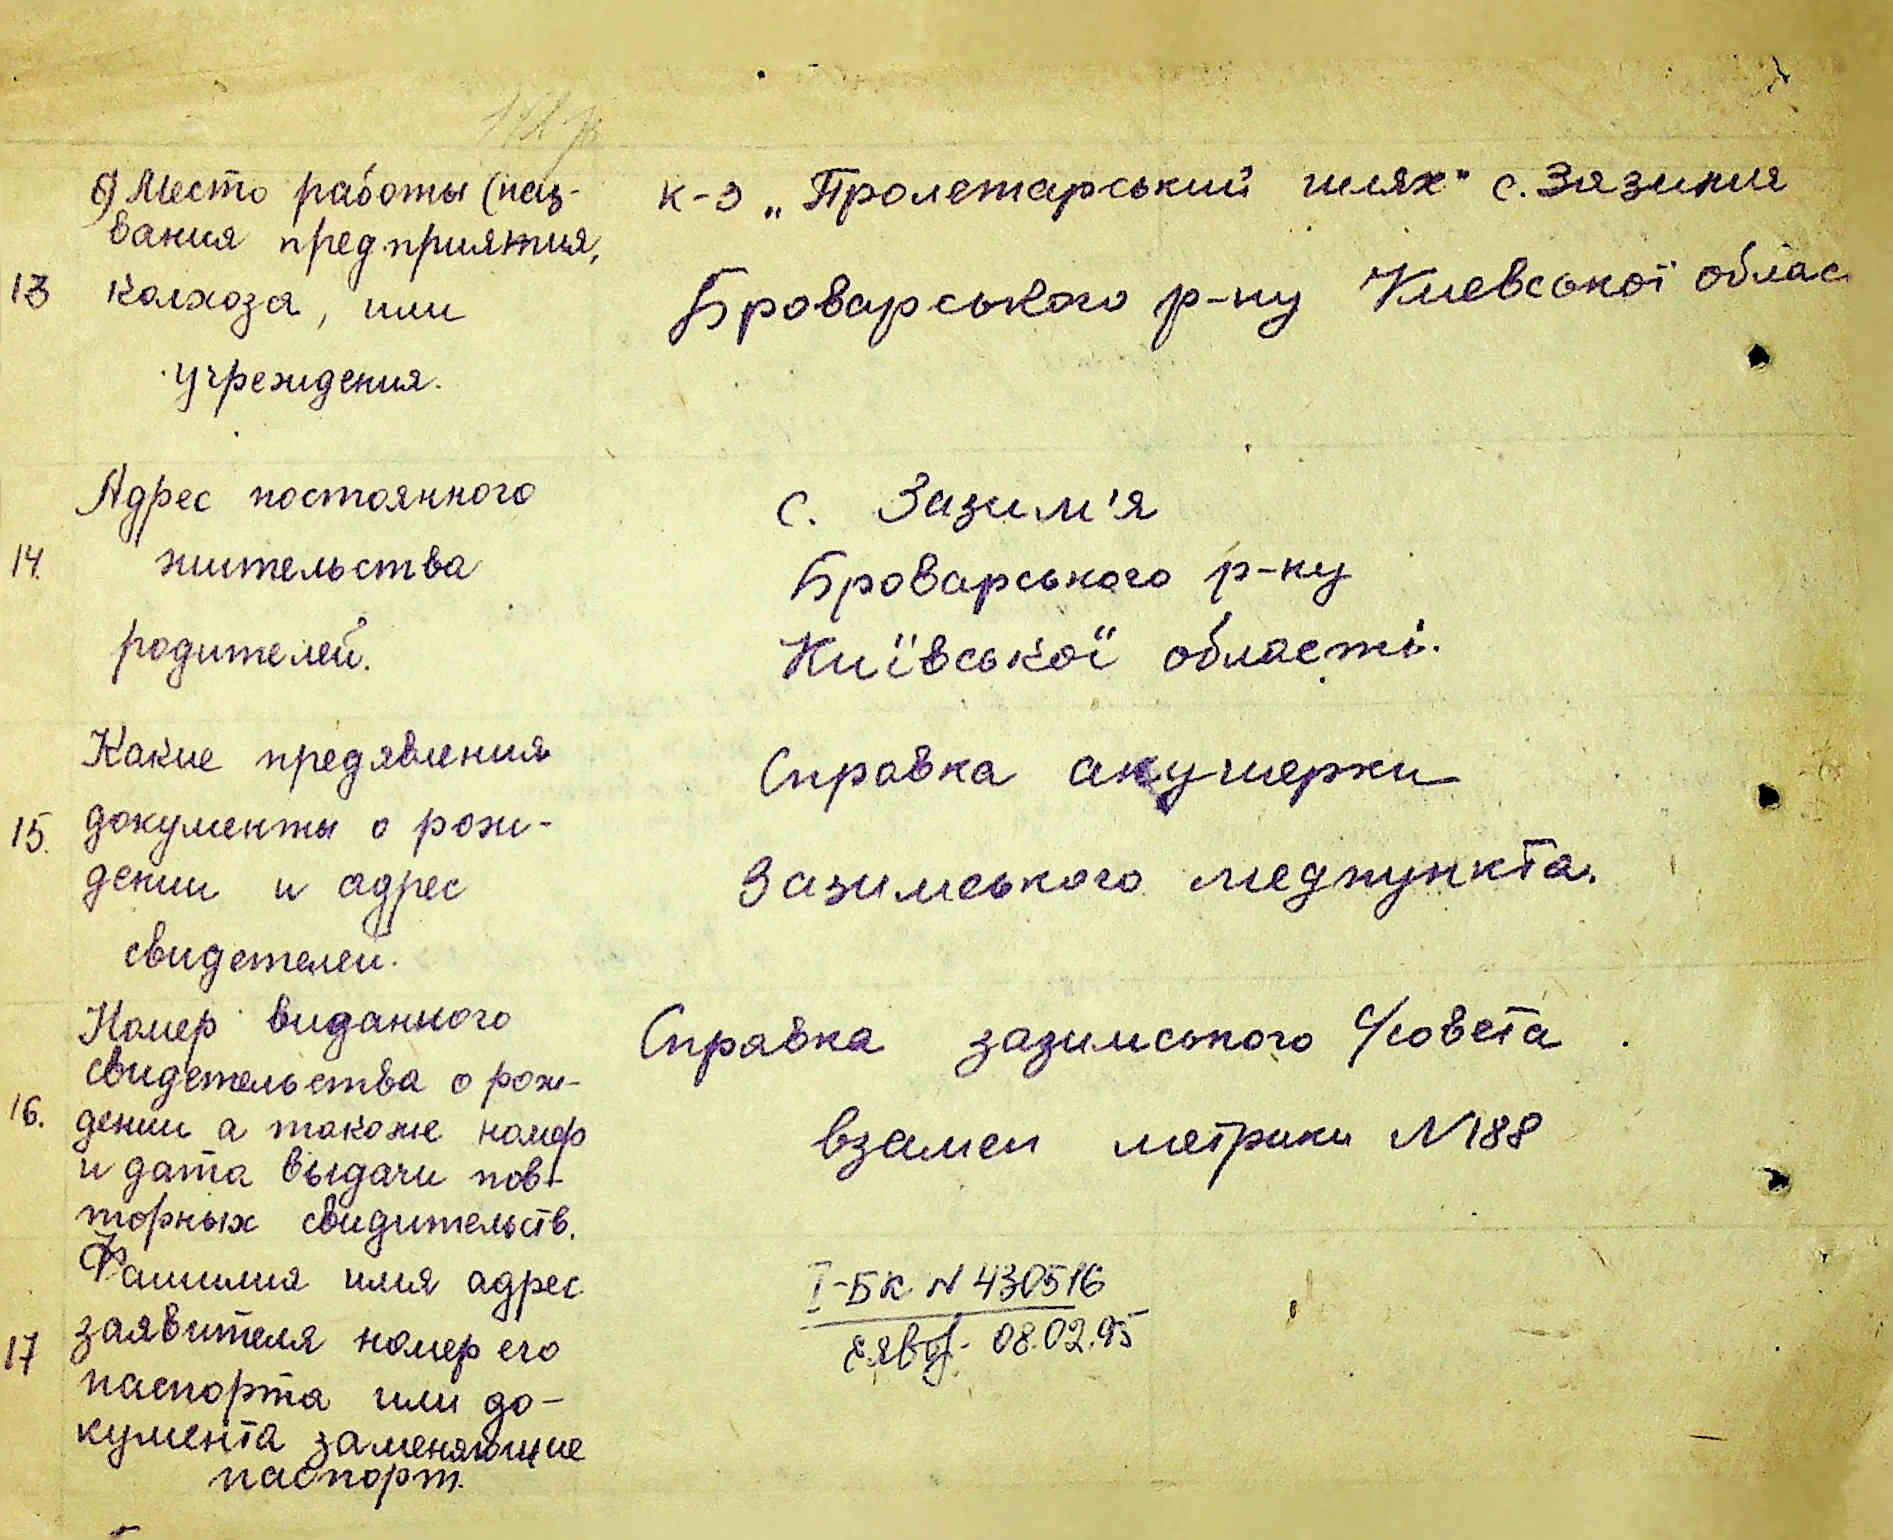 б) Место работы (наз-
вания предприятия,
13 колхоза, или
учреждения.
к-з „Пролетарський шлях" с. Зазимия
Броварського р-ну Киевської облас
Адрес постоянного
14. жительства
родителей.
с. Зазим'я
Броварського р-ну
Київської області.
Какие предявления
15. документы о рож-
дении и адрес
свидетелей.
Справка акушерки
Зазимського медпункта.
Номер виданного
свидетельства о рож-
16. дении а также номер
и дата выдачи пов-
торных свидительств.
Справка зазимського с/совета
взамен метрики №188
Фамилия имя адрес
заявителя номер его
17 паспорта или до-
кумента заменяющие
паспорт.
I-БК N 430516
08.02.95